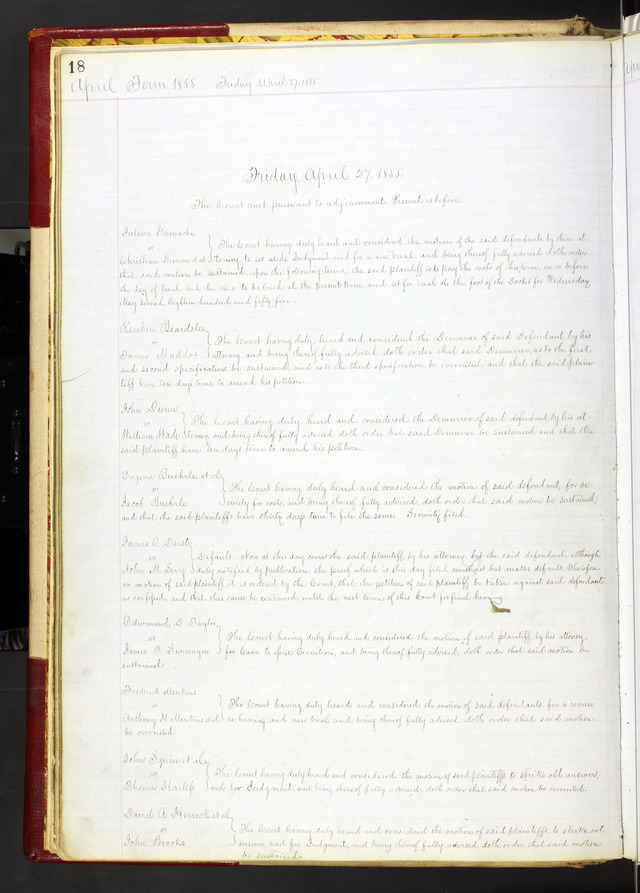 18
April Term 1855 Friday April 27, 1855
Friday April 27, 1855.
The Court met pursuant to adjournment. Present as before.
Julien Gamache
vs
The Court having duly heard and considered the motion of the said defendants by their at-
Christian et al. torney, to set aside Judgment and for a new trial, and being thereof fully advised doth order
that said motion be sustained, upon the following terms, the said plaintiff is to pay the costs of this term, on or before
the day of trial and the case to be tried at the present term, and set for trial on the foot of the Docket for Wednesday
May Second, Eighteen hundred and fifty five.
Reuben Beardslee
vs
The Court having duly heard and considered the Demurrer of said Defendant, by his
James Maddox attorney, and being thereof fully advised doth order that said Demurrer, as to the first
and second specifications be sustained, and as to the third specification be overruled, and that the said plain-
tiff have ten days time to amend his petition.
John Dunn
vs
The Court having duly heard and considered the Demurrer of said defendant, by his at-
William Wade torney, and being thereof fully advised, doth order that said Demurrer be sustained and that the
said plaintiff have ten days time to amend his petition.
Eugenie Buehrle et al.
vs
The Court having duly heard and considered the motion of said defendant, for se-
Jacob Buehrle curity for costs, and being thereof fully advised doth order that said motion be sustained,
and that the said plaintiffs have thirty days time to file the same. Security filed.
James E. Darst
vs
Default. Now at this day comes the said plaintiff, by his attorney, but the said defendant, although
John M. duly notified by publication, the proof which is this day filed comes not but makes default, Wherefore
on motion of said plaintiff, it is ordered by the Court, that the petition of said plaintiff be taken against said defendant
as confessed, and that this cause be continued until the next term of this Court for final hearing.
Edmond D. Taylor
vs
The Court having duly heard and considered the motion of said plaintiff, by his attorney,
James B. for leave to issue Execution, and being thereof fully advised, doth order that said motion be
sustained.
Frederick Menkins
vs
The Court having duly heard and considered the motion of said defendants, for a review
Anthony H. Menkins et al. re-hearing and new trial and being thereof fully advised doth order that said motion
be overruled.
John Squire et al.
vs
The Court having duly heard and considered the motion of said plaintiffs to strike out answer,
Thomas Harless and for Judgment, and being thereof fully advised, doth order that said motion be overruled.
David A. Herrick et al.
vs
The Court having duly heard and considered the motion of said plaintiffs, to strike out
John Brooks answer, and for Judgment, and being thereof fully advised doth order that said motion
be sustained.